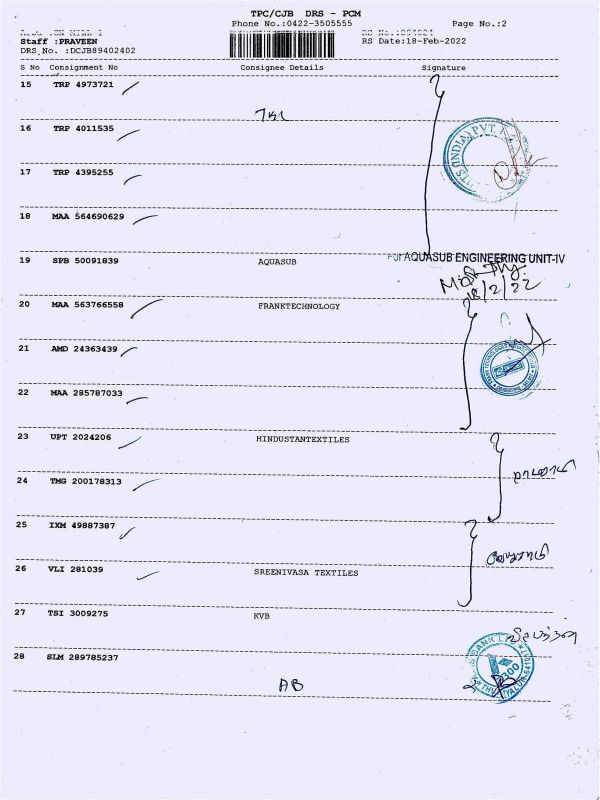 TPC/CJB DRS - PCM
Phone No.:0422-3505555 Page No.:2
Staff :PRAVEEN RS Date:18-Feb-2022
DRS No. :DCJB89402402
S No Consignment No Consignee Details Signature
15 TRP 4973721
16 TRP 4011535
17 TRP 4395255
18 MAA 564690629
19 SPB 50091839 AQUASUB For AQUASUB ENGINEERING UNIT-IV
18/2/22
20 MAA 563766558 FRANKTECHNOLOGY
21 AMD 24363439
22 MAA 285787033
23 UPT 2024206 HINDUSTANTEXTILES
24 TMG 200178313
25 IXM 49887387
26 VLI 281039 SREENIVASA TEXTILES
27 TSI 3009275 KVB
28 SLM 289785237
AB